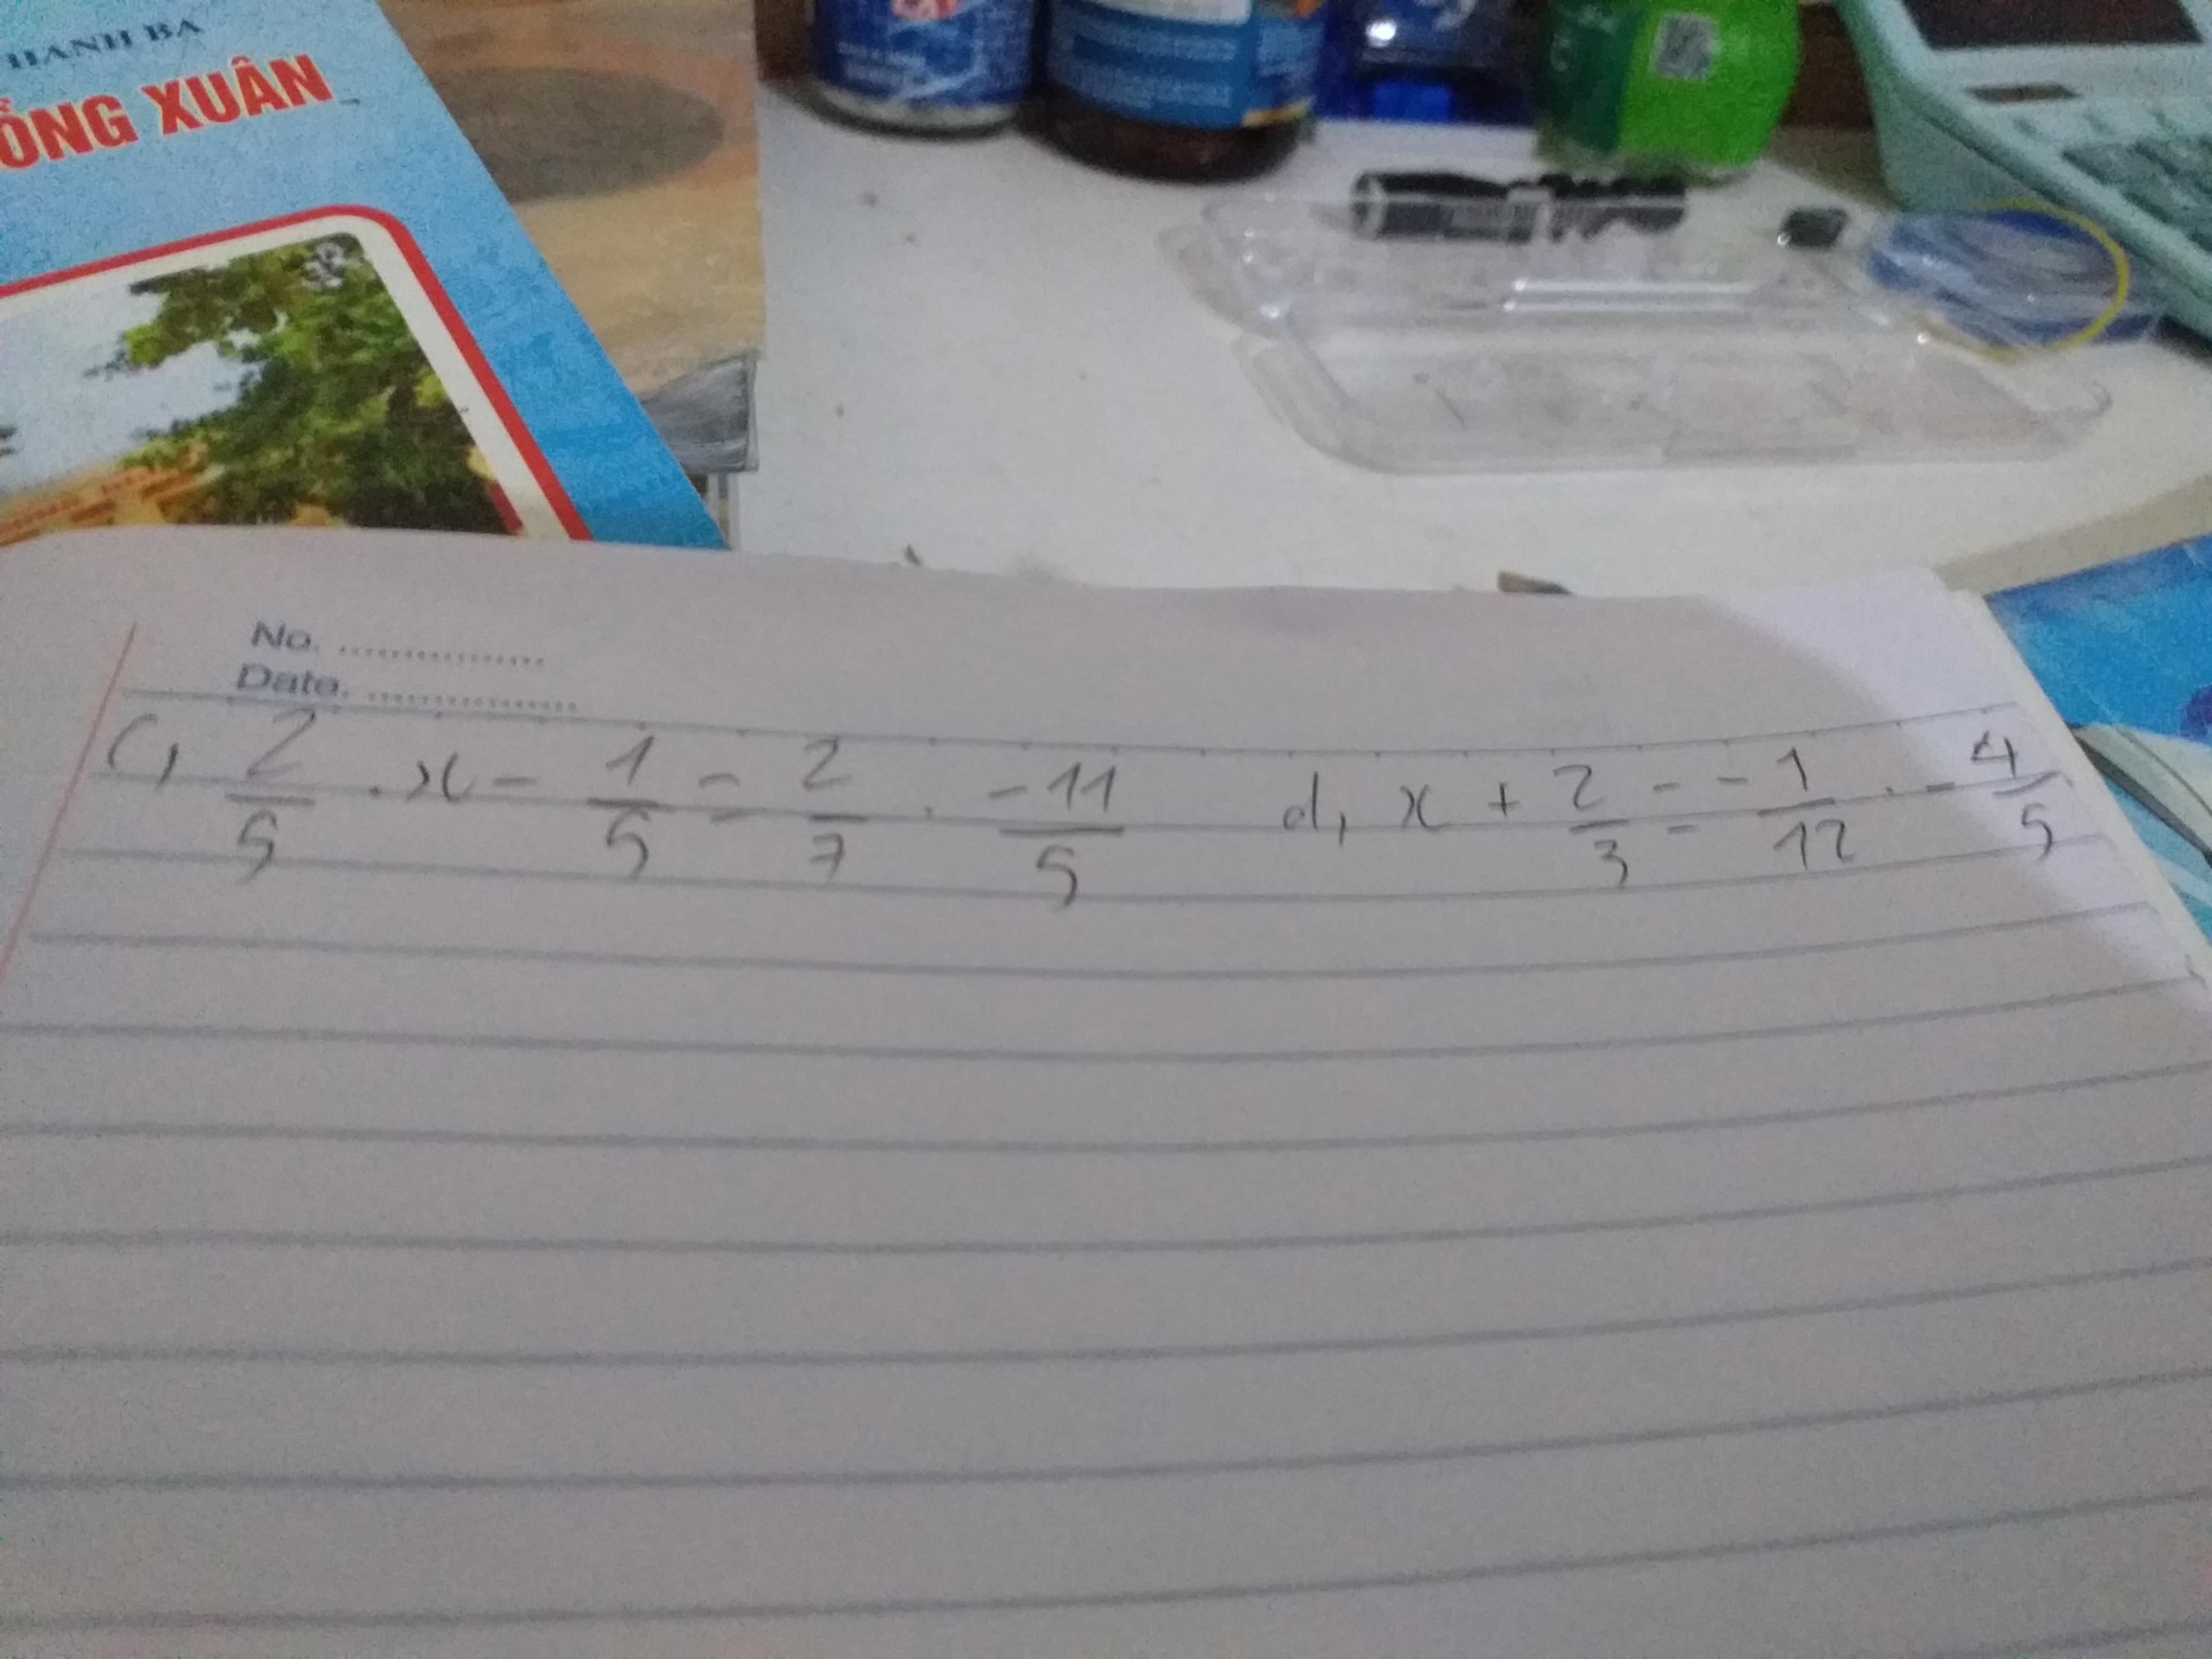 HANH BA
ỒNG XUÂN
No. ................
Date. ................
c, 2/5 . x - 1/5 = 2/7 . -11/5 d, x + 2/3 = -1/12 . -4/5